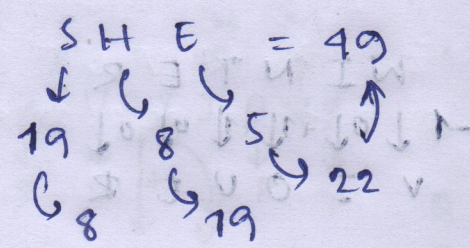 S H E = 49
19 8 5 22
8 19